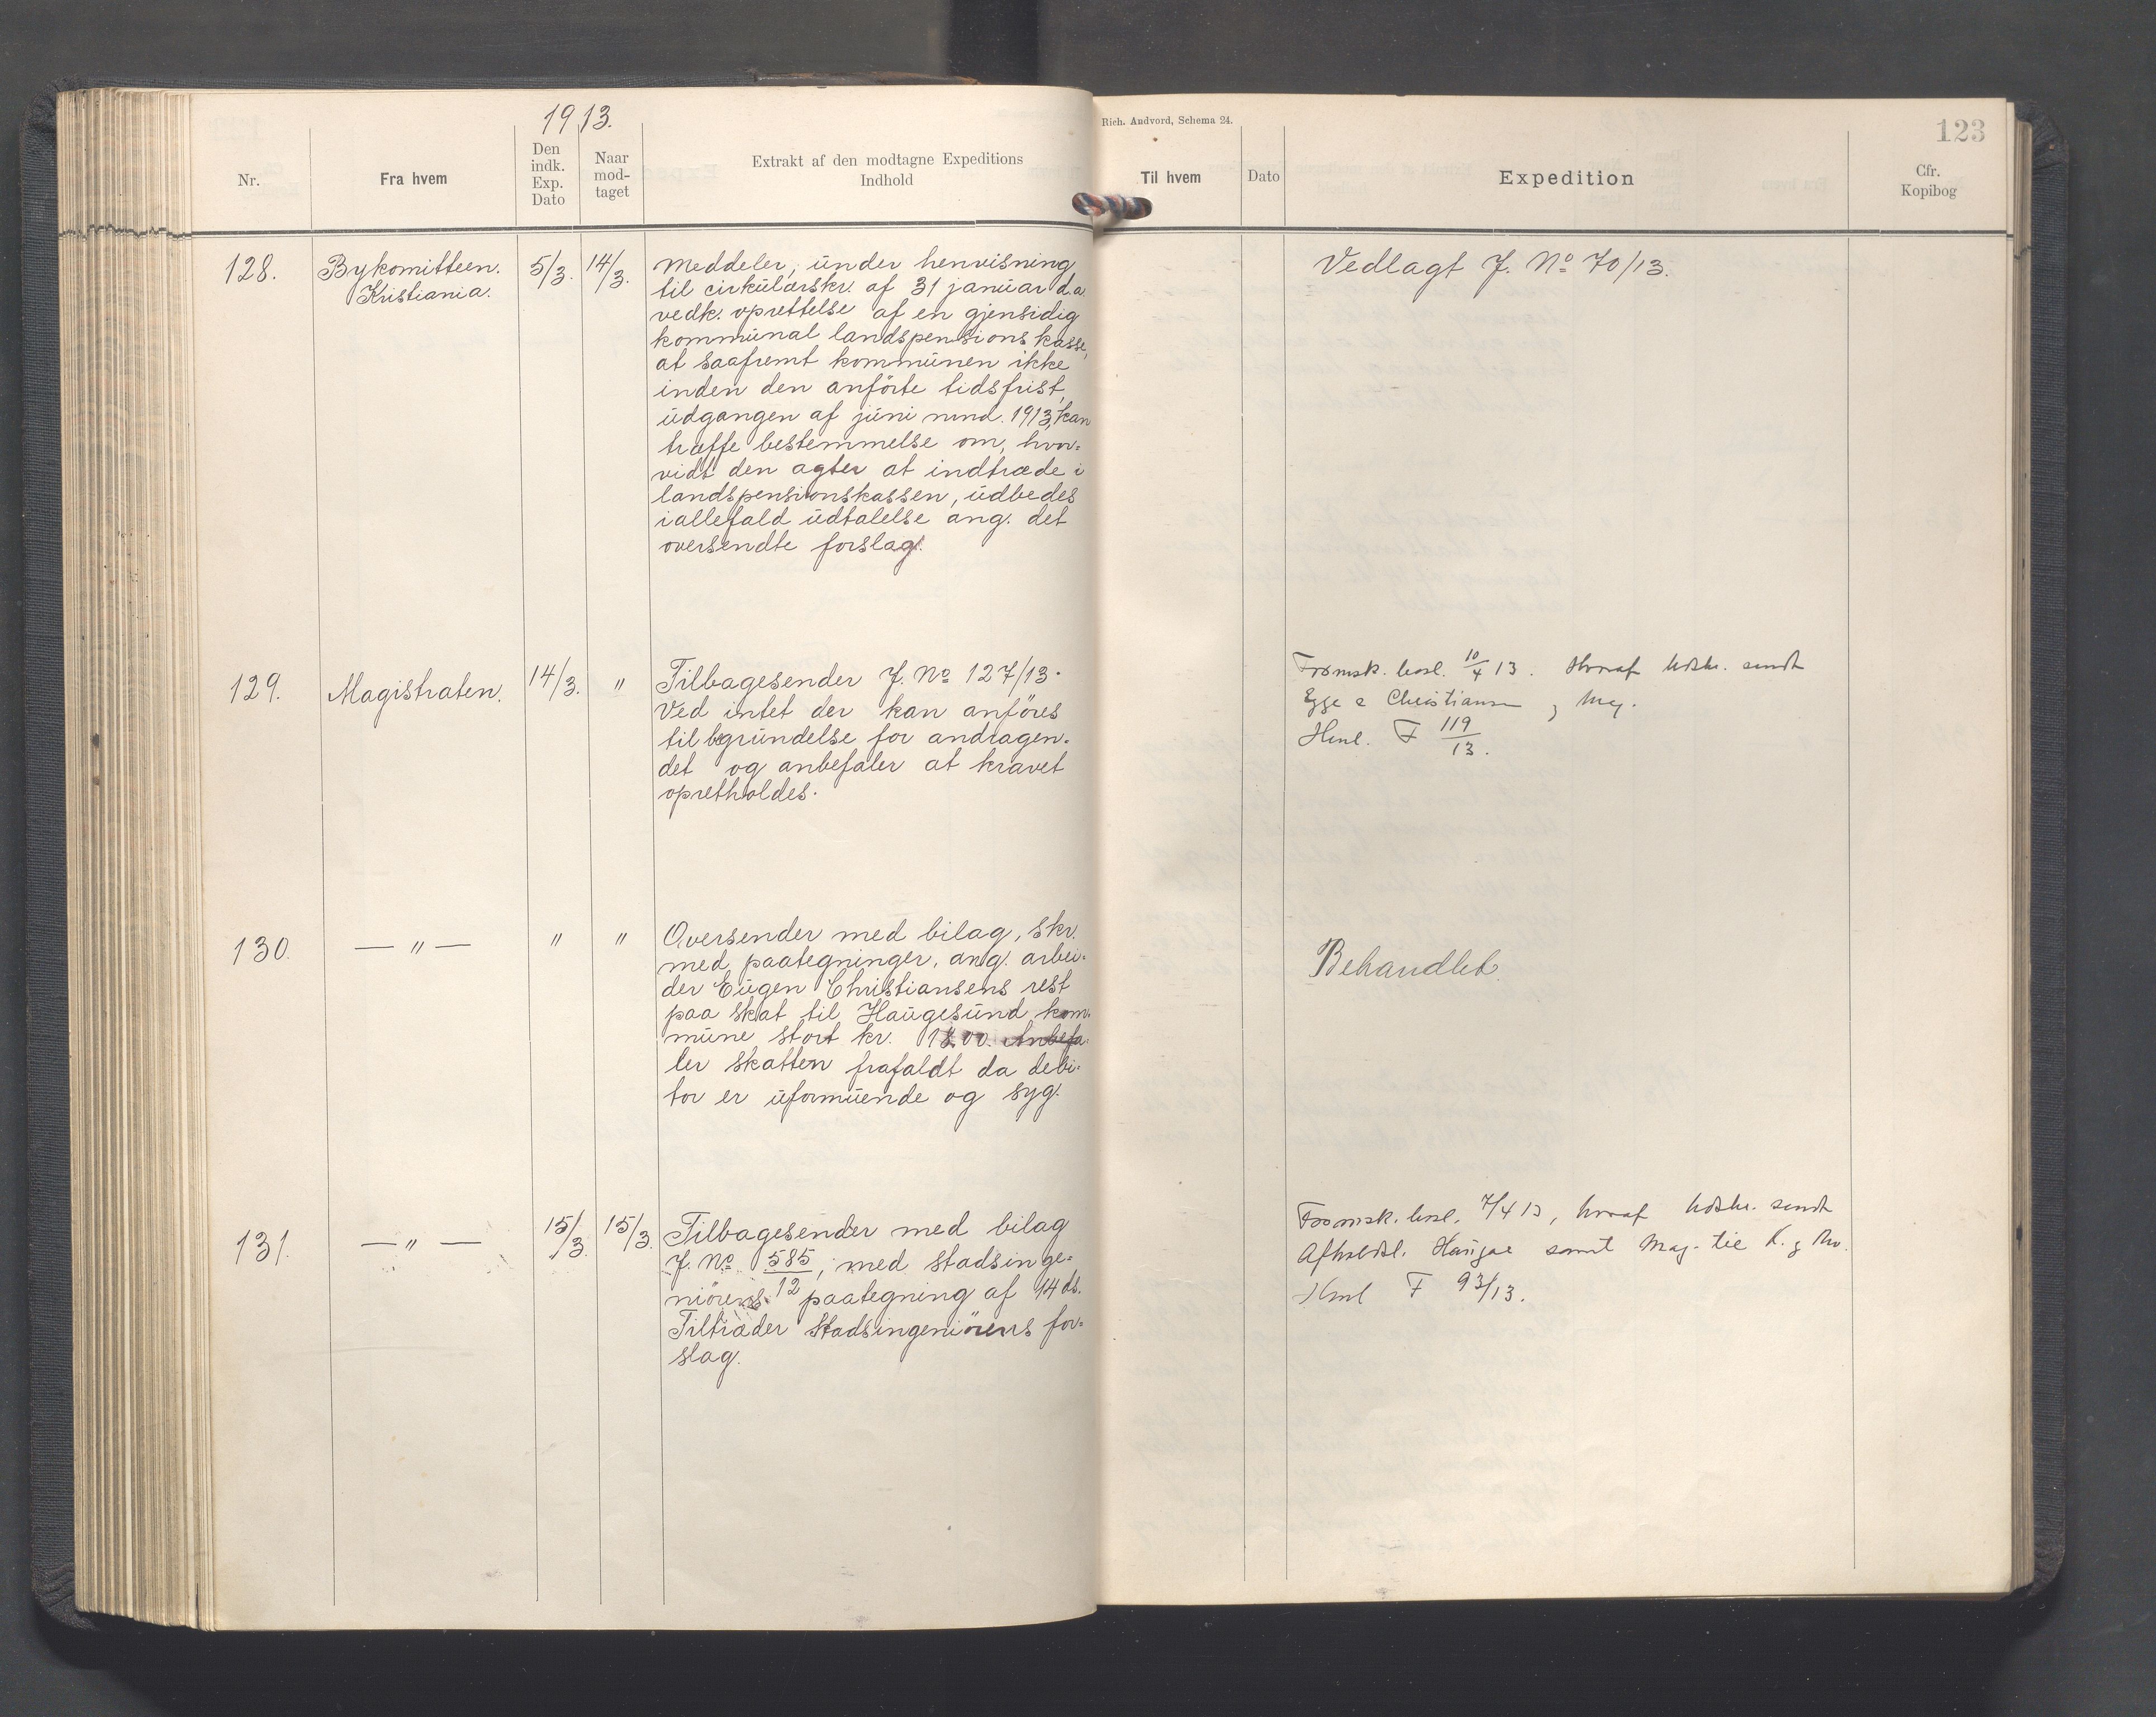 1913.
Rich. Andvord, Schema 24.
123
Nr.
Fra hvem
Den indk. Exp. Dato
Naar mod- taget
Extrakt af den modtagne Expeditions Indhold
Til hvem
Dato
Expedition
Cfr. Kopibog
128.
Bykomitteen.
Kristiania.
5/3.
14/3.
Meddeler, under henvisning
til cirkulærskr. af 31 januar d.a.
vedk. oprettelse af en gjensidig
kommunal landspensionskasse,
at saafremt kommunen ikke
inden den anförte tidsfrist,
udgangen af juni mnd. 1913, kan
træffe bestemmelse om, hvor-
vidt den agter at indtræde i
landspensionskassen, udbedes
iallefald udtalelse ang. det
oversendte forslag.
Vedlagt J. No 70/13.
129.
Magistraten.
14/3.
"
Tilbagesender J. No 127/13.
Ved intet der kan anföres
til begrundelse for andragen-
det og anbefaler at kravet
opretholdes.
Formsk. besl. 10/4 13. Hvoraf Udskr. sendt
Egge & Christiansen, Mag.
Henl. F 119/13.
130.
— " —
"
"
Oversender med bilag, skr.
med paategninger, ang. arbei-
der Eugen Christiansens rest
paa skat til Haugesund kom-
mune stort kr. Anbefa-
ler skatten frafaldt da debi-
tor er uformuende og syg.
Behandlet.
131.
— " —
15/3.
15/3.
Tilbagesender med bilag
J. No 585/12, med stadsinge-
niörens paategning af 14 ds.
Tiltræder stadsingeniörens for-
slag.
Formsk. besl. 7/4 13, hvoraf Udskr. sendt
Afholdsl. samt Mag. til
Henl F 93/13.